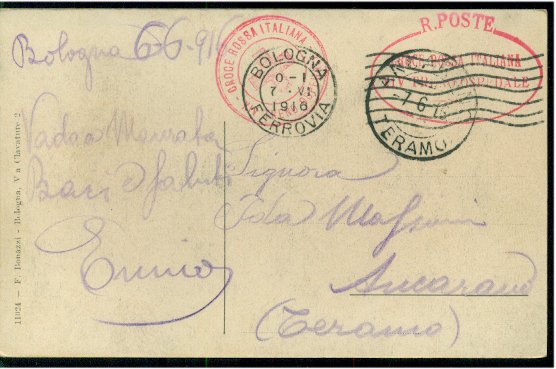 Bologna 6 6 916
CROCE ROSSA ITALIANA
BOLOGNA
0-1
7 VI
1916
FERROVIA
R. POSTE
CROCE ROSSA ITALIANA
OSPEDALE
ANCARANO
-7.6.16
TERAMO
Vado a
Baci e saluti
Ennio
Signora
Ida
Ancarano
(Teramo)
11024 - F. Bonazzi - Bologna, Via Clavature 2